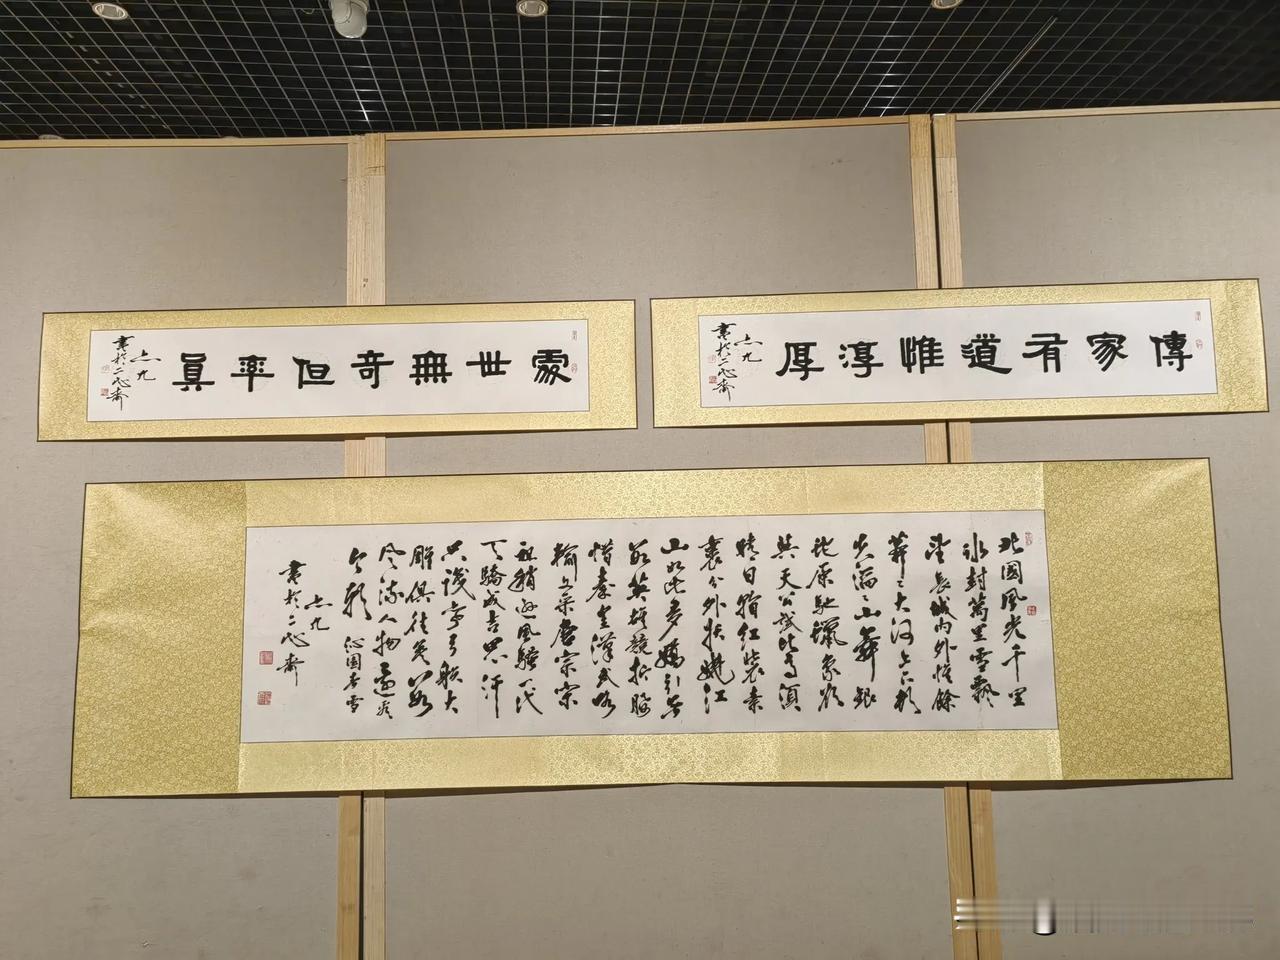 處世無奇但率眞
書於二心齋
傳家有道惟淳厚
書於二心齋
北國風光千里
冰封萬里雪飄
望長城內外惟餘
莽〻大河上下頓
失滔〻山舞銀
蛇原馳蠟象欲
與天公試比高須
晴日看紅裝素
裹分外妖嬈江
山如此多嬌引無
數英雄競折腰
惜秦皇漢武略
輸文采唐宗宋
祖稍遜風騷一代
天驕成吉思汗
只識彎弓射大
雕俱往矣數
風流人物還看
今朝 沁園春雪
書於二心齋